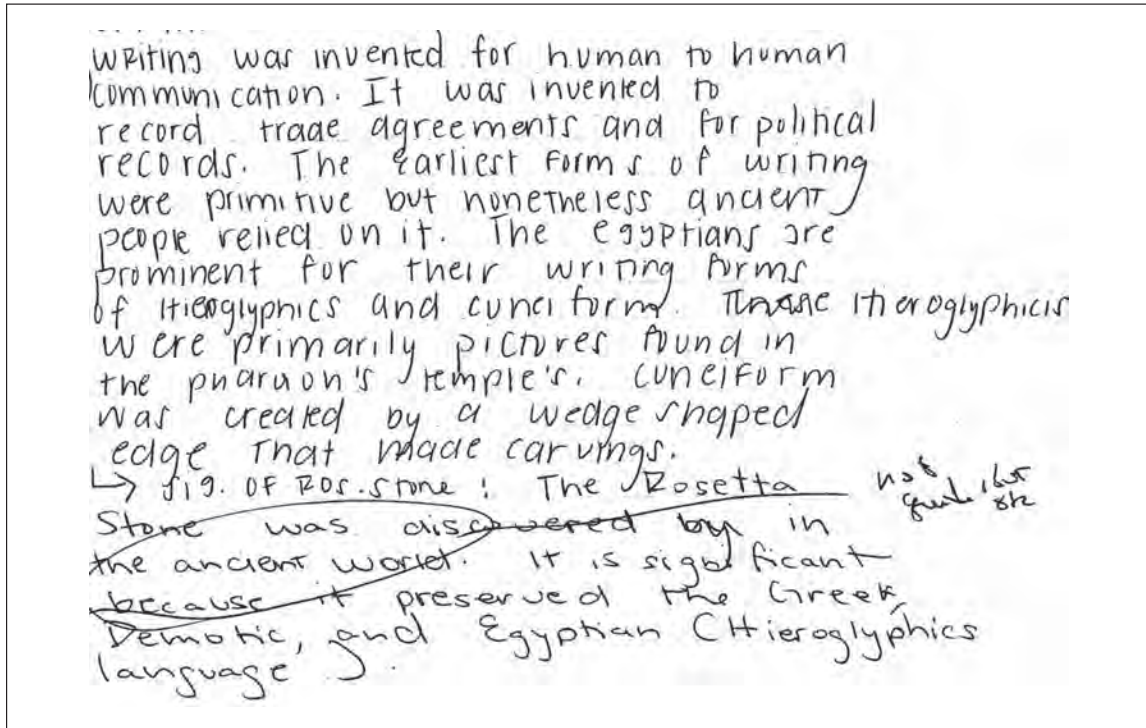 Writing was invented for human to human
communication. It was invented to
record trade agreements and for political
records. The earliest forms of writing
were primitive but nonetheless ancient
people relied on it. The egyptians are
prominent for their writing forms
of Hieroglyphics and cuneiform. Hieroglyphicis
were primarily pictures found in
the pharaon's temple's. cuneiform
was created by a wedge shaped
edge that made carvings.
↳ fig. of Ros. stone : The Rosetta
not but
Stone was discovered by in
the ancient world. It is significant
because it preserved the Greek,
Demotic, and Egyptian (Hieroglyphics
language).